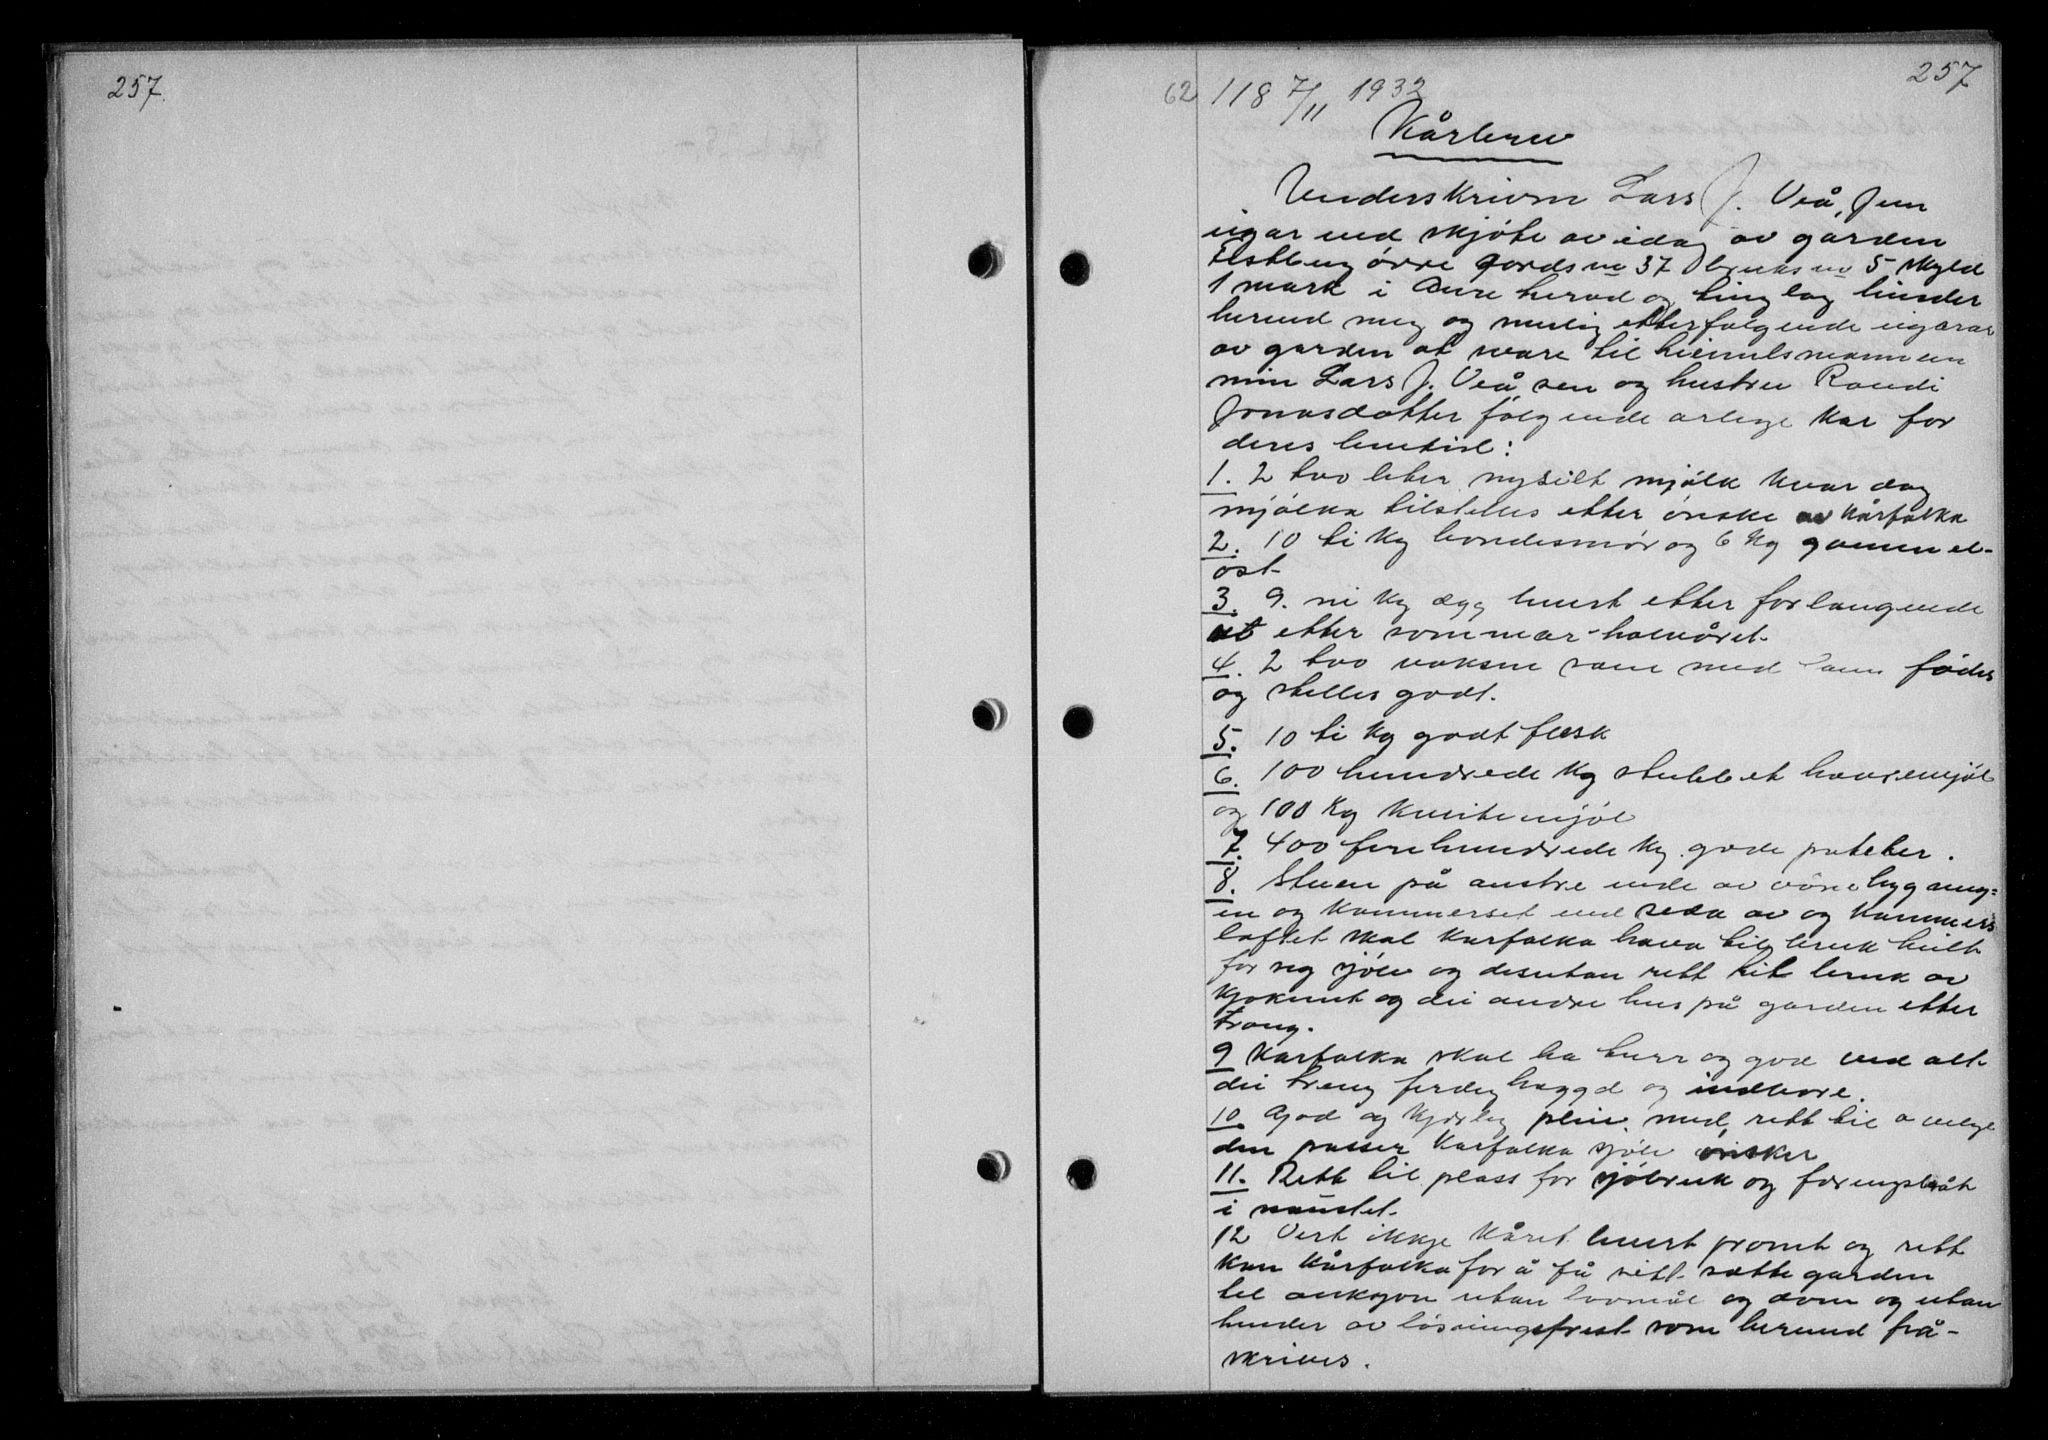 257.
257
62 118 7/11 1932
Kårbrev
Underskriven Lars J. Veå, jun
eigar med skjøte av idag av garden
øvre gards nr 37 bruks nr 5 skyld
1 mark i Aure herad og tinglag binder
herved meg og mulig etterfølgende eigarar
av garden at svare til heimelsmannen
min Lars J. Veå sen og hustru Randi
Jonasdotter følgende årlege kår for
deres levetid:
1. 2 tvo liter nysilt mjølk kvar dag
mjølka tilstelles etter ønske av kårfolka
2. 10 ti kg bondesmør og 6 kg gammel-
ost
3. 9. ni kg egg levert etter forlangende
etter sommar-halvåret
4. 2 tvo vaksne sau med lam fødes
og stelles godt.
5. 10 ti kg godt flesk
6. 100 hundrede kg havremjøl
og 100 kg kveitemjøl
7. 400 firehundrede kg. gode poteter.
8. Stuen på austre ende av våne bygning-
en og kammerset ved seda av og kammers
loftet skal kårfolka hava til bruk heilt
for seg sjølv og desutan rett til bruk av
kjøkenet og dei andre hus på garden etter
trong.
9 Kårfolka skal ha turr og god ved alt
dei treng ferdig hoggd og indbore.
10 God og kjærleg pleie med rett til å velge
den passer kårfolka sjølv ønsker
11. Rett til plass for sjøbruk og færingsbåt
i naustet.
12 Vert ikkje kåret levert promt og rett
kan kårfolka for å få sitt sætte garden
til auksjon utan lovmål og dom og utan
hinder av løsningsfrist som herved frå-
skrives.